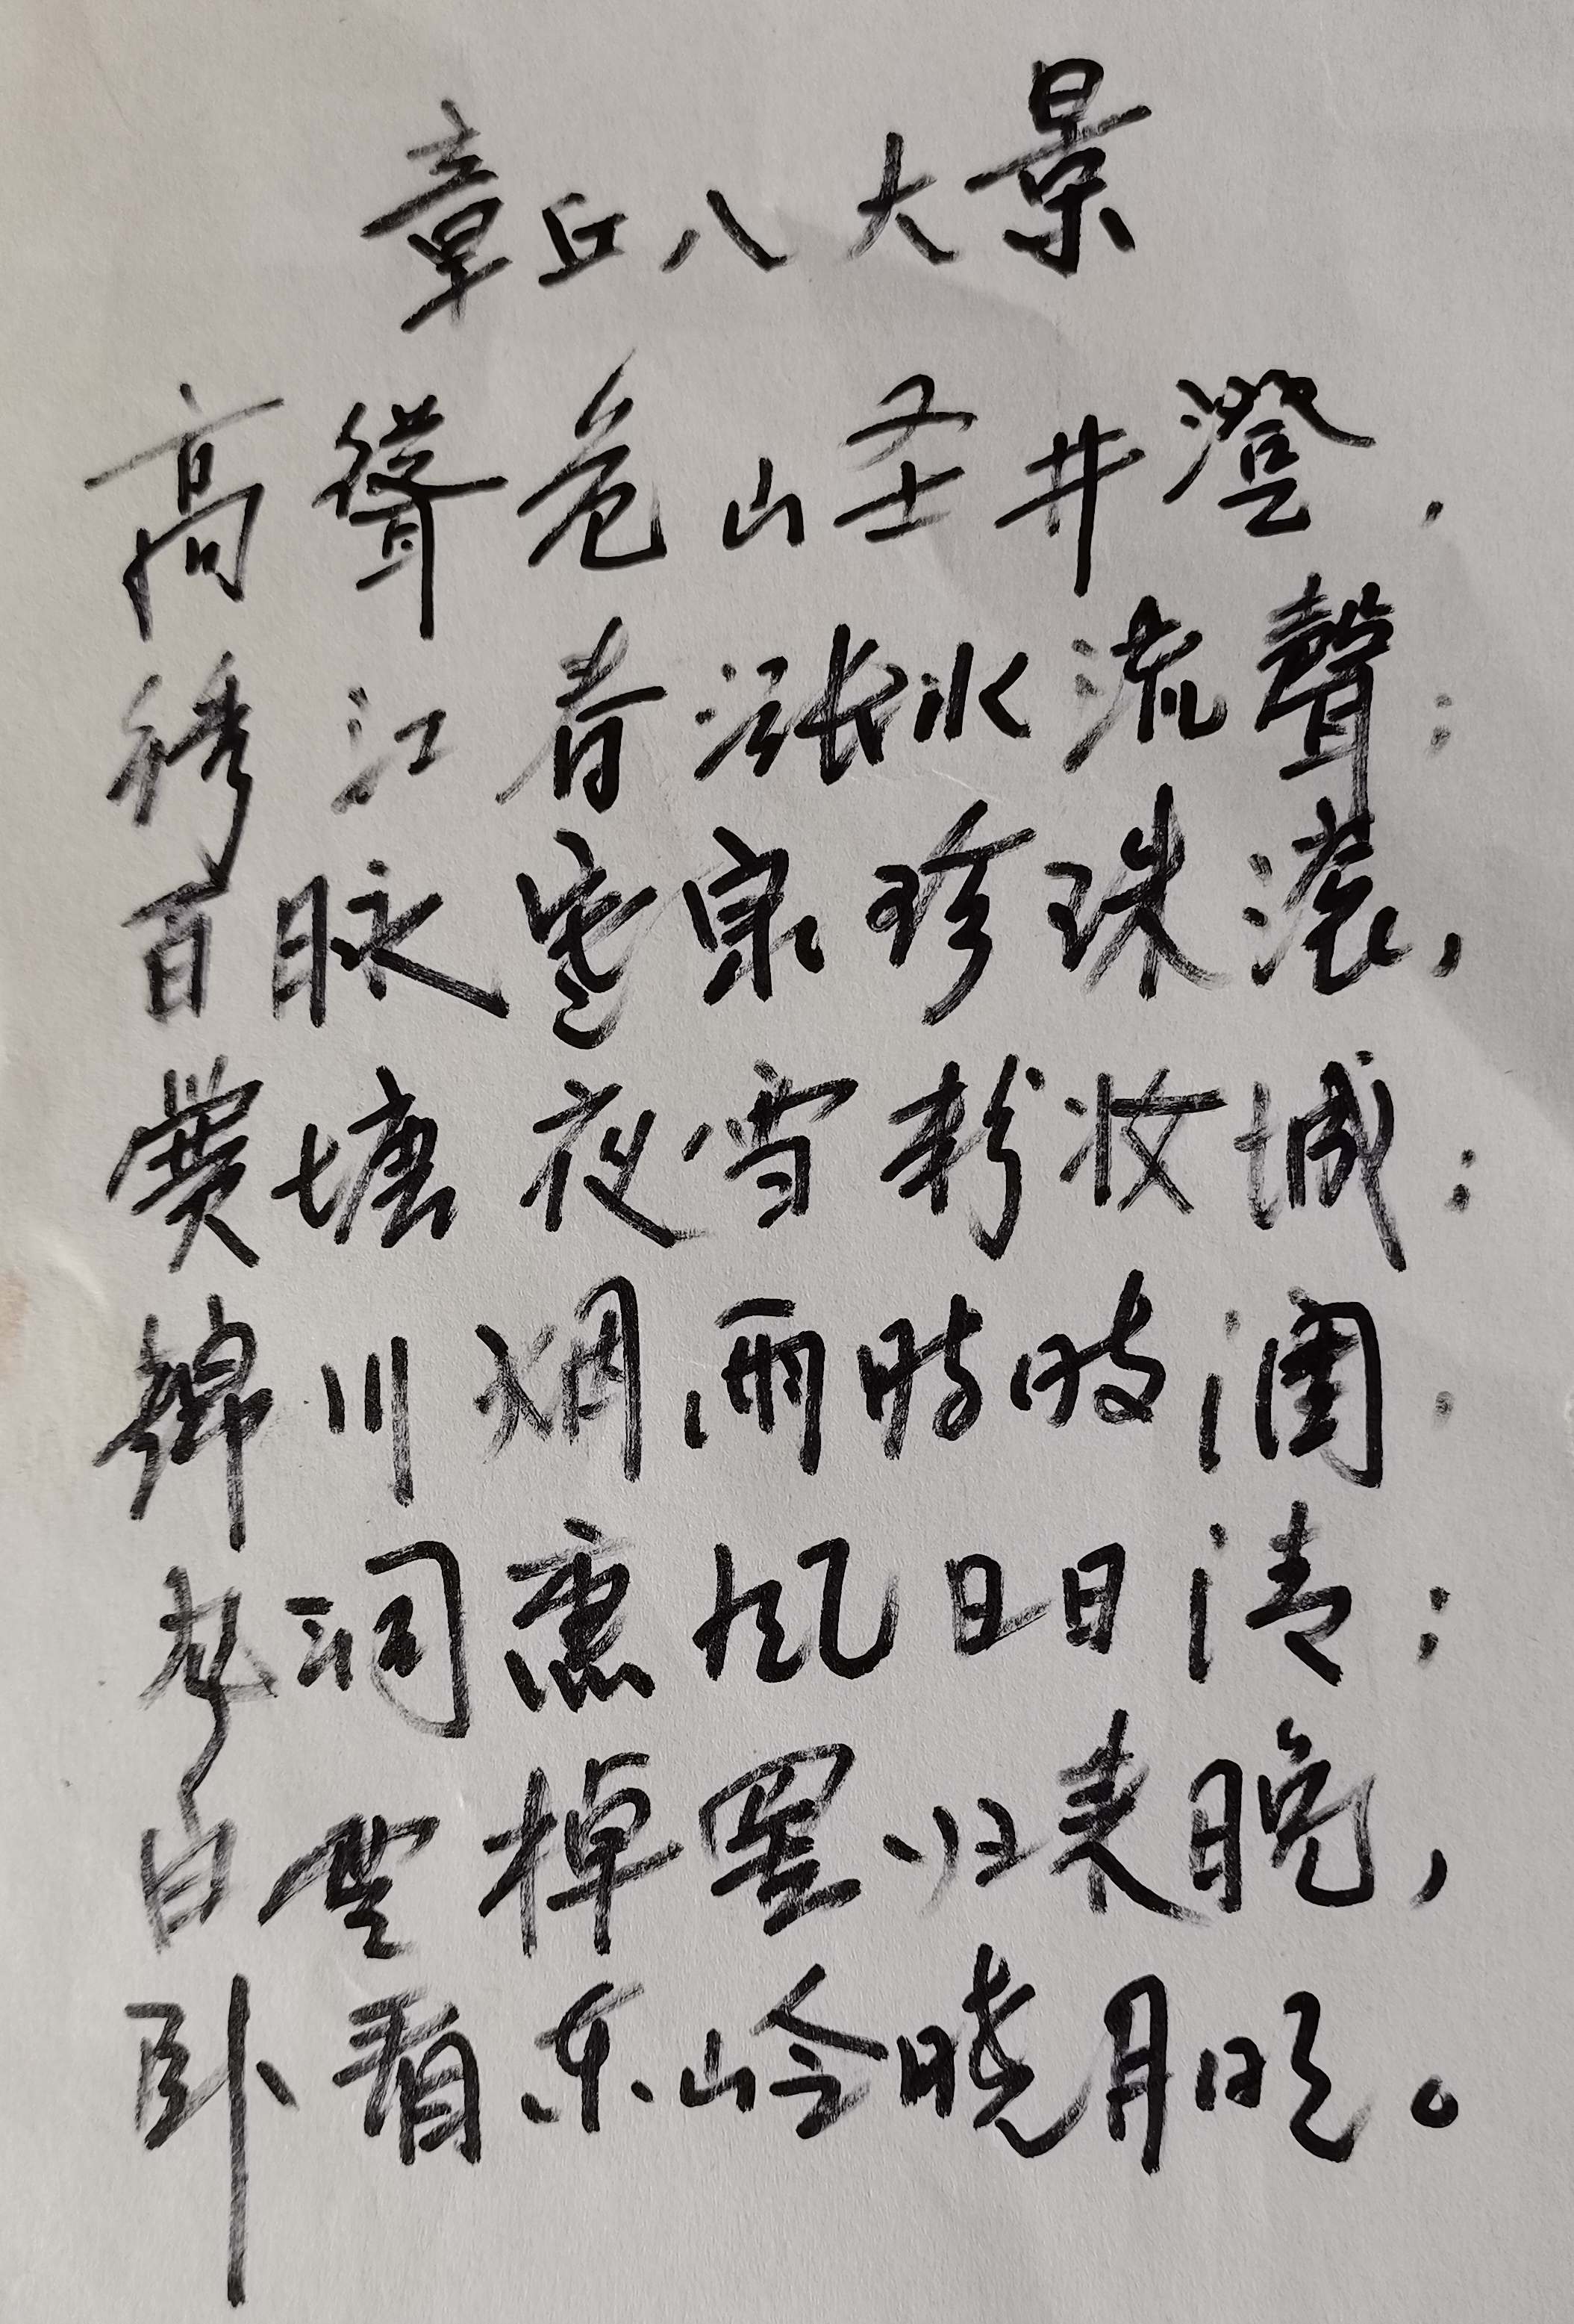 章丘八大景
高聳危山圣井澄，
绣江春涨水流聲；
百脉寒泉珍珠滚，
黉塘夜雪粉妆城；
锦川烟雨時時润，
龙洞熏风日日清；
白云棹罢归来晚，
卧看东岭晓月明。